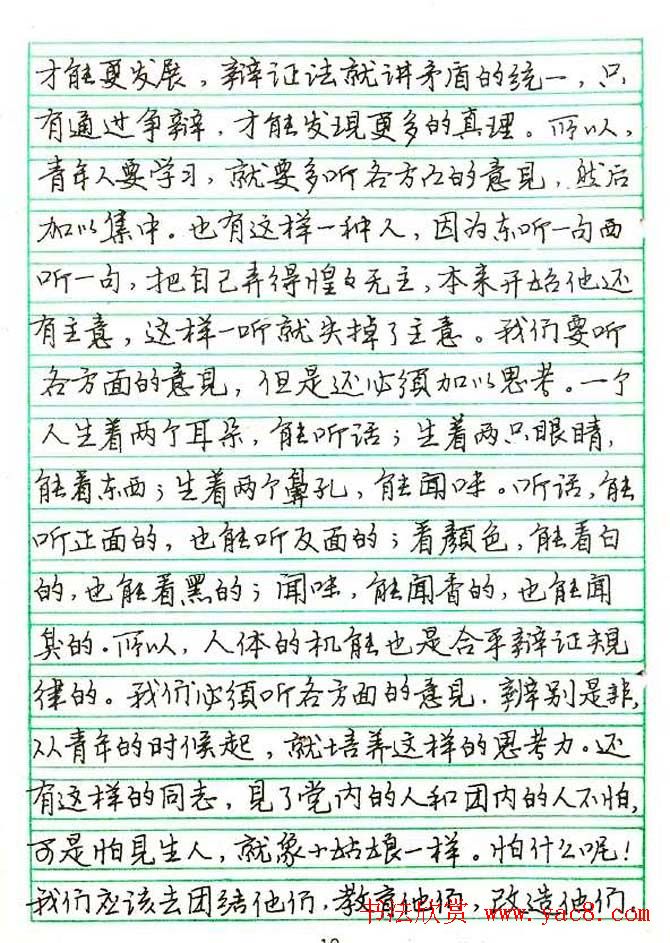 才能更发展，辩证法就讲矛盾的统一，只
有通过争辩，才能发现更多的真理。所以，
青年人要学习，就要多听各方面的意见，然后
加以集中。也有这样一种人，因为东听一句西
听一句，把自己弄得惶々无主，本来开始他还
有主意，这样一听就失掉了主意。我们要听
各方面的意见，但是还必须加以思考。一个
人生着两个耳朵，能听话；生着两只眼睛，
能看东西；生着两个鼻孔，能闻味。听话，能
听正面的，也能听反面的；看颜色，能看白
的，也能看黑的；闻味，能闻香的，也能闻
臭的。所以，人体的机能也是合乎辩证规
律的。我们必须听各方面的意见，辨别是非，
从青年的时候起，就培养这样的思考力。还
有这样的同志，见了党内的人和团内的人不怕，
可是怕见生人，就象小姑娘一样。怕什么呢！
我们应该去团结他们，教育他们，改造他们，
书法欣赏→www.yac8.com